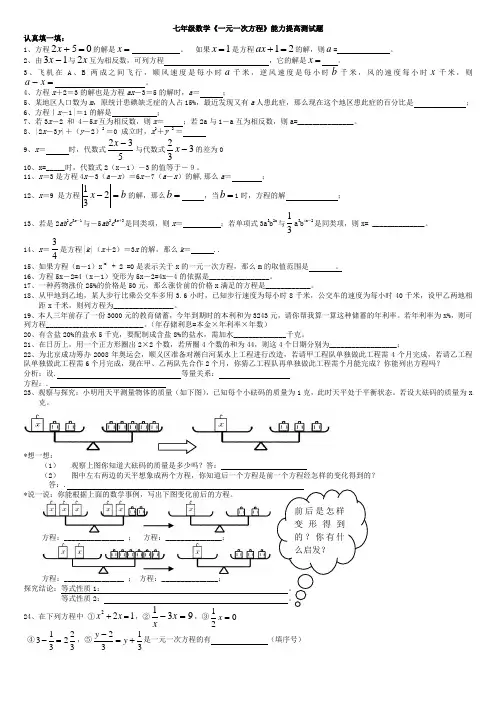 七年级数学《一元一次方程》能力提高测试题
认真填一填:
1、方程2x+5=0的解是x= 。 如果x=1是方程ax+1=2的解,则a= 。
2、由3x-1与2x互为相反数,可列方程 ,它的解是x= 。
3、飞机在A、B两成之间飞行,顺风速度是每小时a千米,逆风速度是每小时b千米,风的速度每小时x千米,则
a-x= 。
4、方程x+2=3的解也是方程ax-3=5的解时,a= ;
5、某地区人口数为m,原统计患碘缺乏症的人占15%,最近发现又有a人患此症,那么现在这个地区患此症的百分比是 ;
6、方程|x-1|=1的解是 ;
7、若3x-2 和 4-5x互为相反数,则x= ;若2a与1-a互为相反数,则a=
8、|2x-3y|+(y-2)²=0 成立时,x²+y²=
9、x= 时,代数式(2x-3)/5与代数式2/3x-3的差为0
10、x= 时,代数式2(x-1)-3的值等于-9。
11、x=3是方程4x-3(a-x)=6x-7(a-x)的解,那么a= ;
12、x=9 是方程|1/3x-2|=b的解,那么b= ,当b=1时,方程的解 ;
13、若是2ab²c³ˣ⁻¹与-5ab²c⁶ˣ⁺³是同类项,则x= ;若单项式3a
14、x=3/4是方程|k|(x+2)=3x的解,那么k=
15、如果方程(m-1)x + 2 =0是表示关于x的一元一次方程,那么m的取值范围是 。
16、方程5x-2=4(x-1)变形为5x-2=4x-4的依据是 。
17、一种药物涨价25%的价格是50元,那么涨价前的价格x满足的方程是 。
18、从甲地到乙地,某人步行比乘公交车多用3.6小时,已知步行速度为每小时8千米,公交车的速度为每小时40千米,设甲乙两地相
距x千米,则列方程为 。
19、本人三年前存了一份3000元的教育储蓄,今年到期时的本利和为3243元,请你帮我算一算这种储蓄的年利率。若年利率为x%,则可
列方程 。(年存储利息=本金×年利率×年数)
20、有含盐20%的盐水5千克,要配制成含盐8%的盐水,需加水 千克。
21、在日历上,用一个正方形圈出2×2个数,若所圈4个数的和为44,则这4个日期分别为 ;
22、为北京成功筹办2008年奥运会,顺义区准备对潮白河某水上工程进行改造,若请甲工程队单独做此工程需4个月完成,若请乙工程
队单独做此工程需6个月完成,现在甲、乙两队先合作2个月,你猜乙工程队再单独做此工程需个月能完成?你能列出方程吗?
分析:设. 等量关系:
方程:.
23、观察与探究:小明用天平测量物体的质量(如下图),已知每个小砝码的质量为1克,此时天平处于平衡状态,若设大砝码的质量为x
克。
*想一想:
(1) 观察上图你知道大砝码的质量是多少吗?答:
(2) 图中左右两边的天平想象成两个方程,你知道后一个方程是前一个方程经怎样的变化得到的?
答:.
*说一说:你能根据上面的数学事例,写出下图变化前后的方程。
前后是怎样
变形得到
的?你有什
么启发?
方程: ; 方程: ;
方程: ; 方程: ;
探究结论:等式性质1: 。
等式性质2: 。
24、在下列方程中 ①x²+2x=1,②1/x-3x=9,③1/2x=0
④3-1/3=2 2/3,⑤(y-2)/3=y+1/3是一元一次方程的有 (填序号)